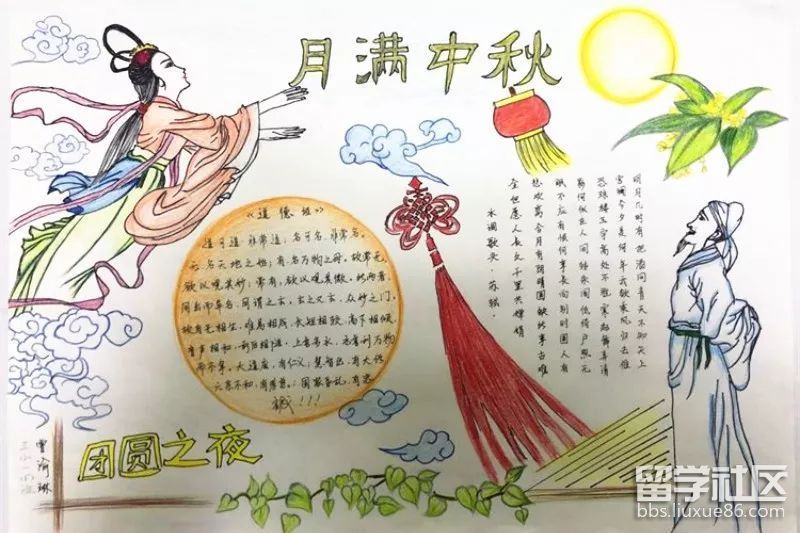 月满中秋
《道德经》
道可道，非常道；名可名，非常名。
无，名天地之始；有，名万物之母。故常无，
欲以观其妙；常有，欲以观其徼。此两者，
同出而异名，同谓之玄，玄之又玄，众妙之门。
故有无相生，难易相成，长短相较，高下相倾，
音声相和，前后相随。上善若水，水善利万物
而不争。大道废，有仁义；慧智出，有大伪
六亲不和，有孝慈；国家昏乱，有忠
明月几时有把酒问青天不知天上
宫阙今夕是何年我欲乘风归去惟
恐琼楼玉宇高处不胜寒起舞弄清
影何似在人间转朱阁低绮户照无
眠不应有恨何事长向别时圆人有
悲欢离合月有阴晴圆缺此事古难
全但愿人长久千里共婵娟
水调歌头·苏轼·
团圆之夜
留学社区
bbs.liuxue86.com